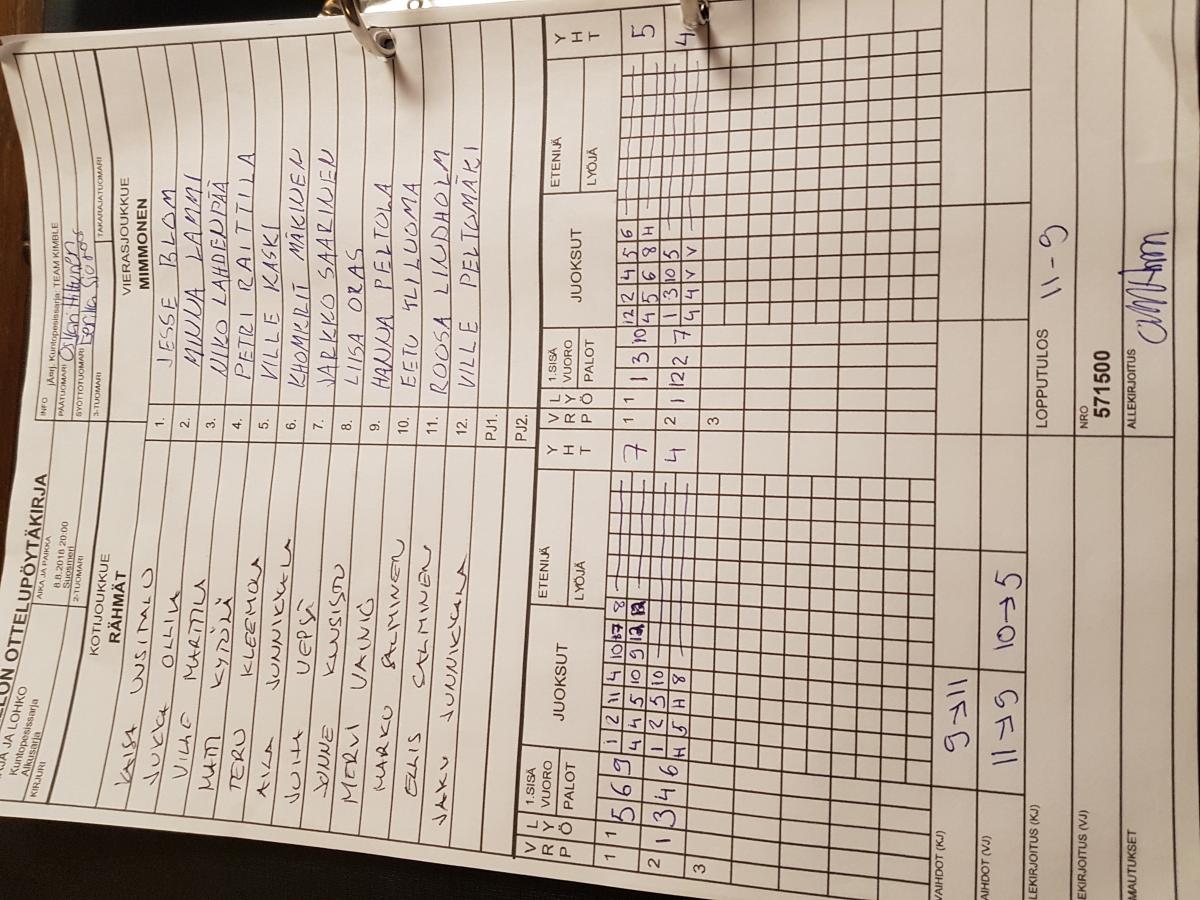 ELON OTTELUPÖYTÄKIRJA
RJA JA LOHKO
Kuntopesissarja
Alkusarja
AIKA JA PAIKKA
8.8.2018 20:00
Suosmeri
INFO jÄrj. Kuntopesissarja: TEAM KIMBLE
KIRJURI
2-TUOMARI
PÄÄTUOMARI
SYÖTTÖTUOMARI
3-TUOMARI
TAKARAJATUOMARI
KOTIJOUKKUE
RÄHMÄT
VIERASJOUKKUE
MIMMONEN
KAISA UUSITALO 1. JESSE BLOM
JUKKA OLLILA 2. MINNA LAMMI
VILLE MARTTILA 3. NIKO LAHDENPÄÄ
MATTI KYTÖLÄ 4. PETRI RAITTILA
TERO KLEEMOLA 5. VILLE KASKI
JUNNIKKALA 6. MÄKINEN
JUHA 7. JARKKO SAARINEN
8. LIISA ORAS
MERVI VAINIO 9. HANNA PELTOLA
MARKO SALMINEN 10. EETU YLILUOMA
ELLIS SALMINEN 11. ROOSA LINDHOLM
JAKU JUNNIKKALA 12. VILLE PELTOMÄKI
PJ1.
PJ2.
V R P L Y Ö 1.SISÄ VUORO PALOT JUOKSUT ETENIJÄ LYÖJÄ Y H T V R P L Y Ö 1.SISÄ VUORO PALOT JUOKSUT ETENIJÄ LYÖJÄ Y H T
1 1 5 6 9 1 2 11 4 10 8 7 1 1 1 3 10 12 2 4 5 6 5
4 4 5 10 9 12 4 5 6 8 H
2 1 3 4 6 1 2 5 10 4 2 1 12 2 7 1 3 10 5 4
H 5 H 8 4 4 V V
3 3
VAIHDOT (KJ) 9→11
VAIHDOT (VJ) 11→9 10→5
LEKIRJOITUS (KJ) LOPPUTULOS 11-9
EKIRJOITUS (VJ) NRO
571500
MAUTUKSET ALLEKIRJOITUS